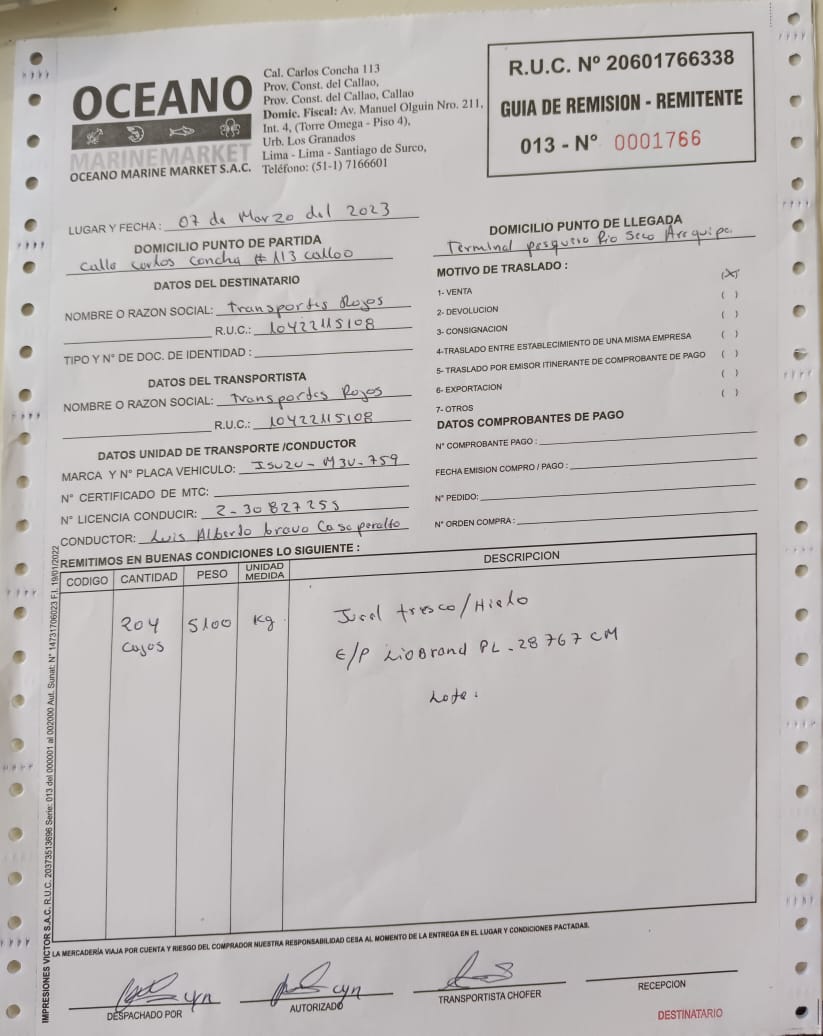 OCEANO
MARINEMARKET
OCEANO MARINE MARKET S.A.C.
Cal. Carlos Concha 113
Prov. Const. del Callao,
Prov. Const. del Callao, Callao
Domic. Fiscal: Av. Manuel Olguin Nro. 211,
Int. 4, (Torre Omega - Piso 4),
Urb. Los Granados
Lima - Lima - Santiago de Surco,
Teléfono: (51-1) 7166601
R.U.C. Nº 20601766338
GUIA DE REMISION - REMITENTE
013 - N° 0001766
LUGAR Y FECHA: 07 de Marzo del 2023
DOMICILIO PUNTO DE PARTIDA
Calle Carlos Concha # 113 Callao
DATOS DEL DESTINATARIO
NOMBRE O RAZON SOCIAL: Transportes Rojas
R.U.C.: 10422115108
TIPO Y N° DE DOC. DE IDENTIDAD :
DATOS DEL TRANSPORTISTA
NOMBRE O RAZON SOCIAL: Transportes Rojas
R.U.C.: 10422115108
DATOS UNIDAD DE TRANSPORTE /CONDUCTOR
MARCA Y N° PLACA VEHICULO: ISUZU - M3U-759
N° CERTIFICADO DE MTC:
N° LICENCIA CONDUCIR: Z-30827255
CONDUCTOR: Luis Alberto bravo Casaperalta
DOMICILIO PUNTO DE LLEGADA
Terminal pesquero Rio Seco Arequipa
MOTIVO DE TRASLADO :
1- VENTA (X)
2- DEVOLUCION ( )
3- CONSIGNACION ( )
4-TRASLADO ENTRE ESTABLECIMIENTO DE UNA MISMA EMPRESA ( )
5- TRASLADO POR EMISOR ITINERANTE DE COMPROBANTE DE PAGO ( )
6- EXPORTACION ( )
7- OTROS ( )
DATOS COMPROBANTES DE PAGO
N° COMPROBANTE PAGO :
FECHA EMISION COMPRO / PAGO :
N° PEDIDO:
N° ORDEN COMPRA :
REMITIMOS EN BUENAS CONDICIONES LO SIGUIENTE :
CODIGO CANTIDAD PESO UNIDAD MEDIDA DESCRIPCION
204 5100 Kg. Jurel fresco/Hielo
Cajas E/P LioBrand PL-28767 CM
Lote:
LA MERCADERÍA VIAJA POR CUENTA Y RIESGO DEL COMPRADOR NUESTRA RESPONSABILIDAD CESA AL MOMENTO DE LA ENTREGA EN EL LUGAR Y CONDICIONES PACTADAS.
DESPACHADO POR
AUTORIZADO
TRANSPORTISTA CHOFER
RECEPCION
DESTINATARIO
IMPRESIONES VICTOR S.A.C. R.U.C. 20373513696 Serie: 013 del 000001 al 002000 Aut. Sunat: N° 14731706023 F.I. 19/01/2022